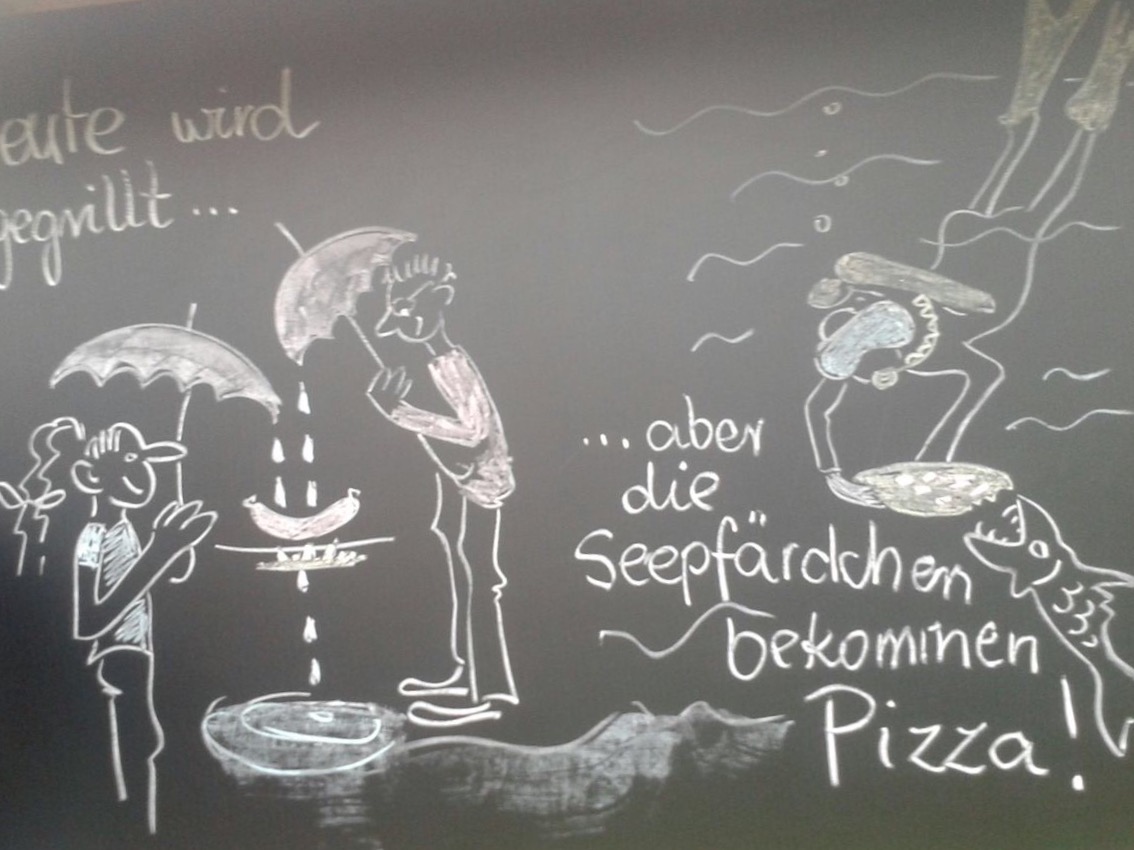 eute wird
gegrillt...
...aber
die
Seepfärdchen
bekommen
Pizza!